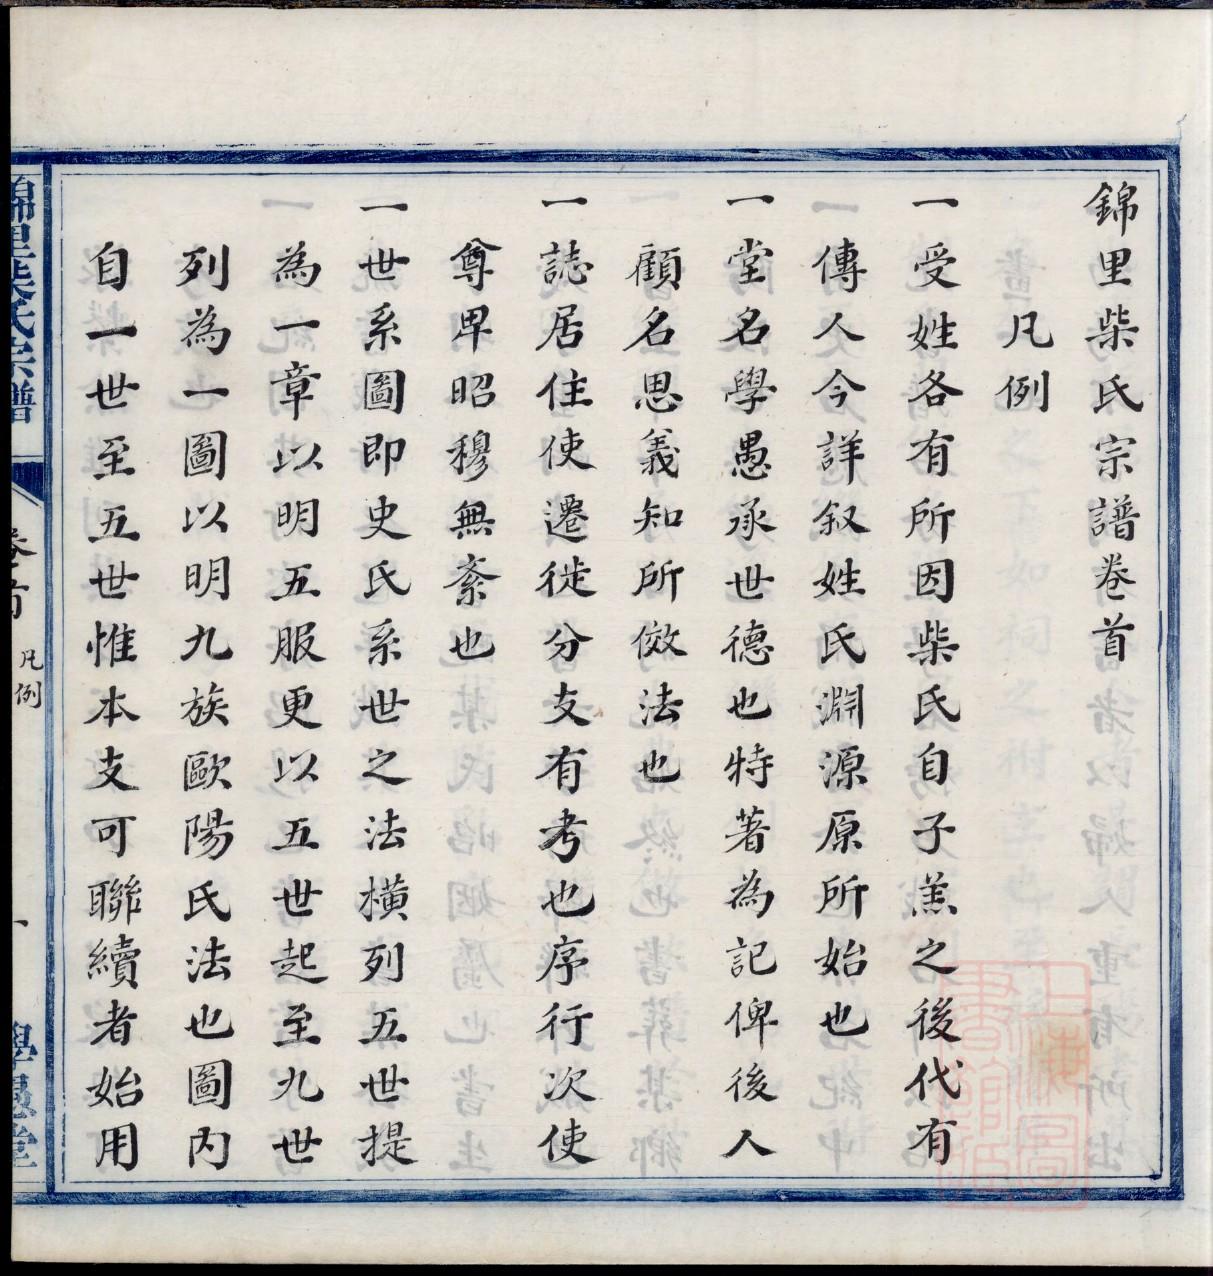 錦里柴氏宗譜卷首
凡例
一受姓各有所因柴氏自子羔之後代有
傳人今詳叙姓氏淵源原所始也
一堂名學愚承世德也特著為記俾後人
顧名思義知所傚法也
一誌居住使遷徙分支有考也序行次使
尊卑昭穆無紊也
一世系圖即史氏系世之法橫列五世提
為一章以明五服更以五世起至九世
列為一圖以明九族歐陽氏法也圖内
自一世至五世惟本支可聯續者始用
錦里柴氏宗譜
卷首
凡例
一
學愚堂
上海圖書館藏